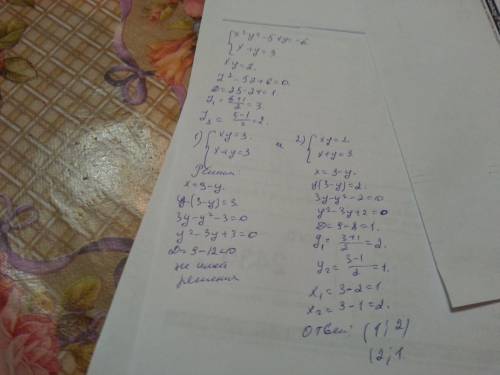 {x²y² - 5xy = -6
x + y = 3
xy = z.
z² - 5z + 6 = 0.
D = 25 - 24 = 1
z₁ = 5+1/2 = 3.
z₂ = 5-1/2 = 2.
1) {xy = 3.
x + y = 3
и
2) {xy = 2.
x + y = 3.
x = 3 - y.
y(3-y) = 3
3y - y² - 3 = 0
y² - 3y + 3 = 0
D = 9 - 12 < 0
не имеет
решения
x = 3 - y.
y(3-y) = 2.
3y - y² - 2 = 0
y² - 3y + 2 = 0
D = 9 - 8 = 1.
y₁ = 3+1/2 = 2.
y₂ = 3-1/2 = 1.
x₁ = 3 - 2 = 1
x₂ = 3 - 1 = 2.
Ответ: (1; 2)
(2; 1